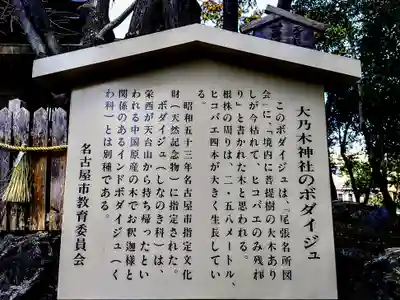 大乃木神社のボダイジュ
このボダイジュは、「尾張名所図
会」に「境内に菩提樹の大木あり
しが今枯れて、ヒコバエのみ残れ
り」と書かれた木と思われる。
根株の周りは、二・五八メートル、
ヒコバエ四本が大きく生長してい
る。
昭和五十三年名古屋市指定文化
財(天然記念物)に指定された。
ボダイジュ(しなのき科)は、
栄西が天台山から持ち帰ったとい
われる中国原産の木でお釈迦様と
関係のあるインドボダイジュ(く
わ科)とは別種である。
名古屋市教育委員会